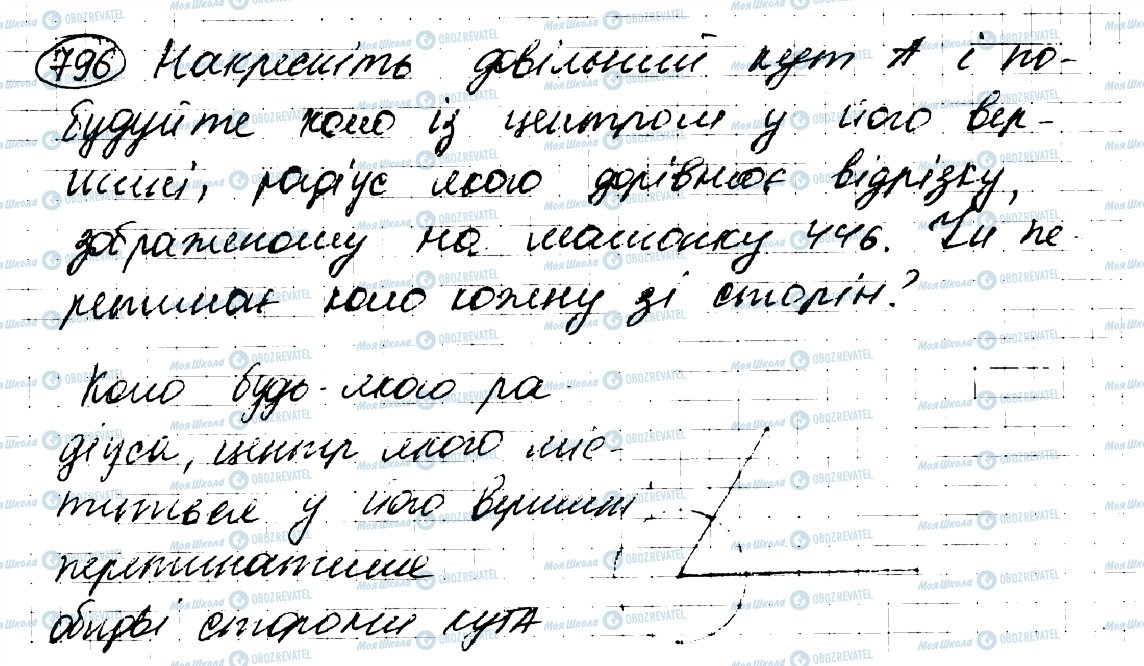 796 Накресліть довільний кут А і по-
будуйте коло із центром у його вер-
шині, радіус якого дорівнює відрізку,
зображеному на малюнку 446. Чи пе
ретинає коло кожну зі сторін?
Коло будь-якого ра
діуса, центр якого міс-
титься у його вершині
перетинатиме
обидві сторони кута